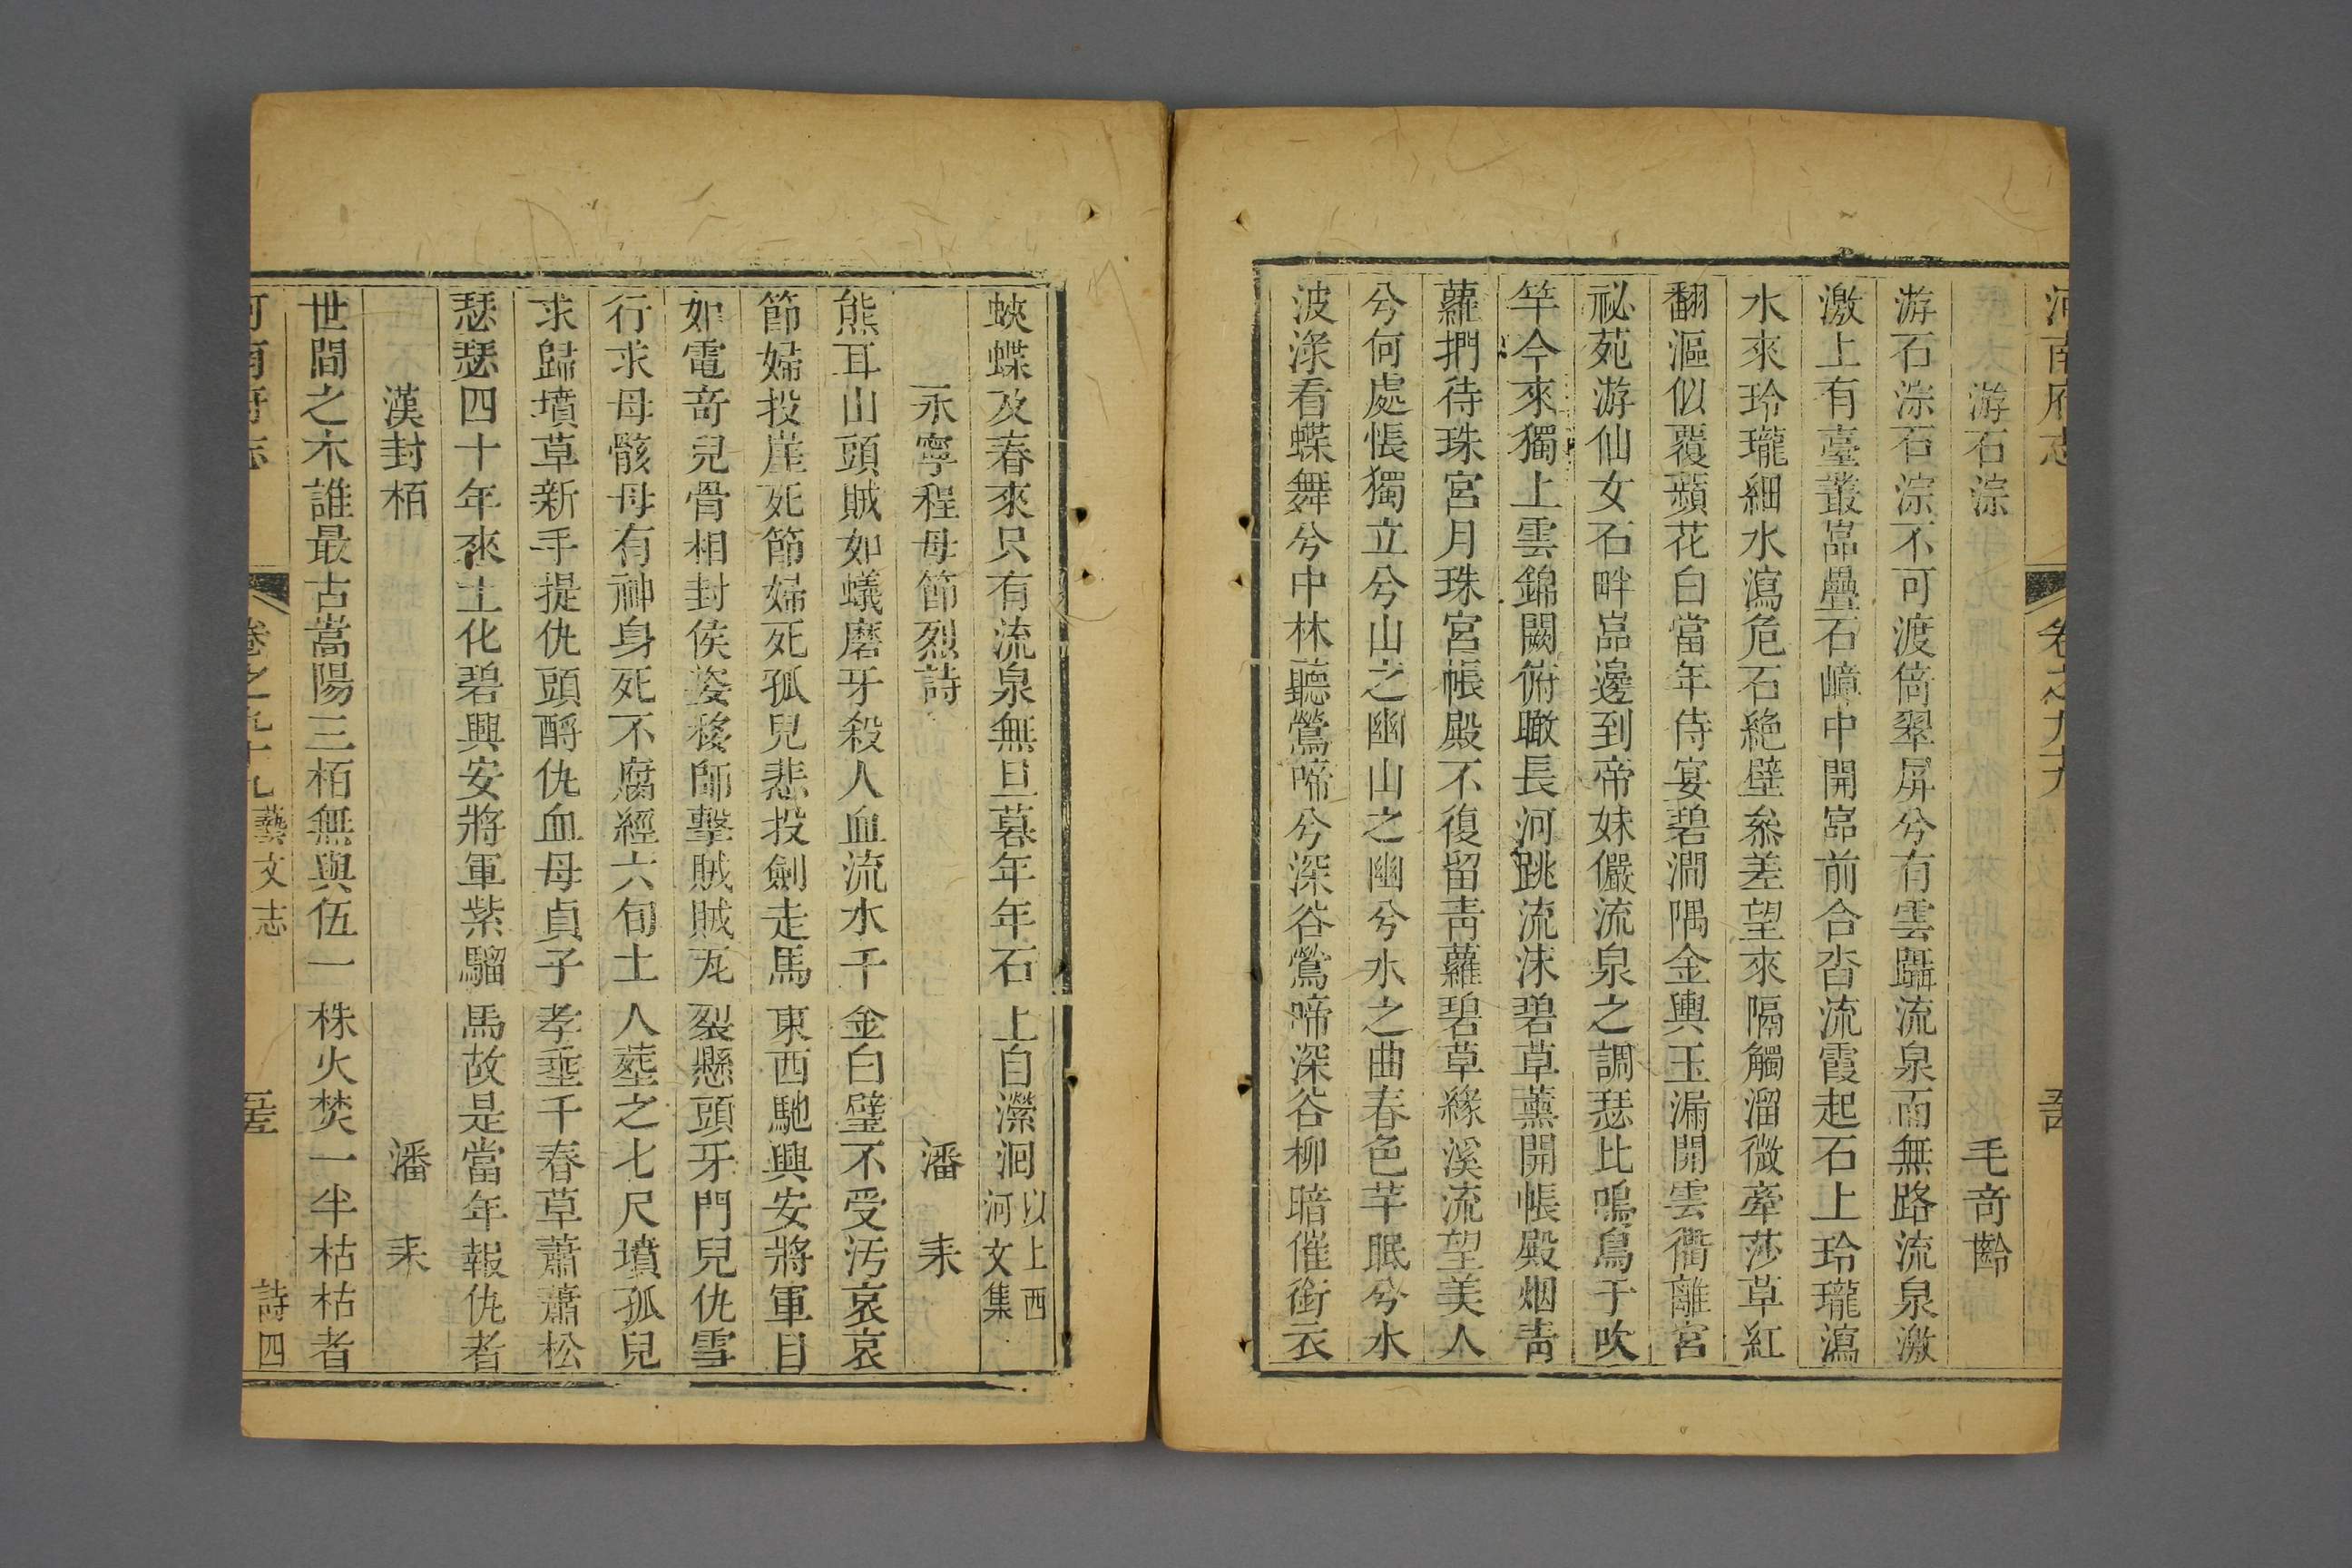 河南府志 卷之九十九
游石淙 毛奇齡
游石淙石淙不可渡倚翠屏兮有雲躡流泉而無路流泉激
激上有臺叢嵓疊石嶂中開嵓前合沓流霞起石上玲瓏瀉
水來玲瓏細水瀉危石絶壁叅差望來隔觸溜微牽莎草紅
翻漚似覆蘋花白當年侍宴碧澗隅金輿玉漏開雲衢離宮
祕苑游仙女石畔嵓邊到帝妹儼流泉之調瑟比鳴鳥于吹
竿今來獨上雲錦闕俯瞰長河跳流沫碧草薰開帳殿烟靑
蘿捫待珠宮月珠宮帳殿不復留靑蘿碧草緣溪流望美人
兮何處悵獨立兮山之幽山之幽兮水之曲春色芊眠兮水
波淥看蝶舞兮中林聽鶯啼兮深谷鶯啼深谷柳暗催銜衣
蛺蝶及春來只有流泉無旦暮年年石上自瀠洄以上西河文集
永寧程母節烈詩 潘耒
熊耳山頭賊如蟻磨牙殺人血流水千金白璧不受汚哀哀
節婦投崖死節婦死孤兒悲投劍走馬東西馳興安將軍目
如電奇兒骨相封侯姿移師擊賊賊瓦裂懸頭牙門兒仇雪
行求母骸母有神身死不腐經六旬土人塟之七尺墳孤兒
求歸墳草新手提仇頭酹仇血母貞子孝垂千春草蕭蕭松
瑟瑟四十年來土化碧興安將軍紫騮馬故是當年報仇者
漢封栢 潘耒
世間之木誰最古嵩陽三栢無與伍一株火焚一半枯枯者
河南府志 卷之九十九 藝文志 詩四